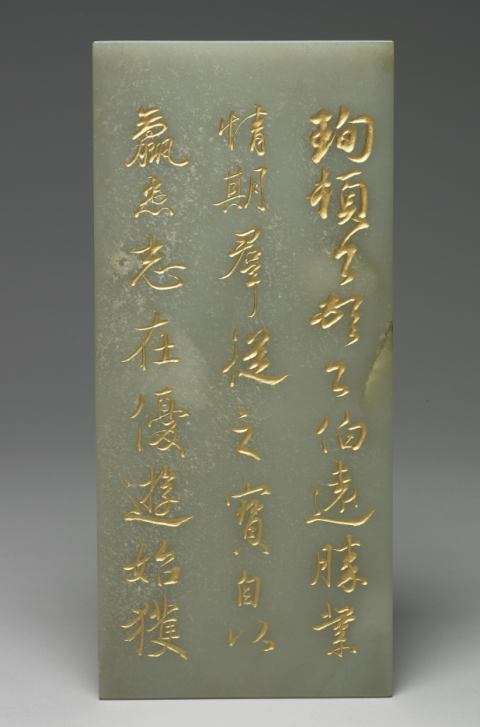 珣頓首頓首伯遠勝業
情期群從之寶自以
羸患志在優遊始獲